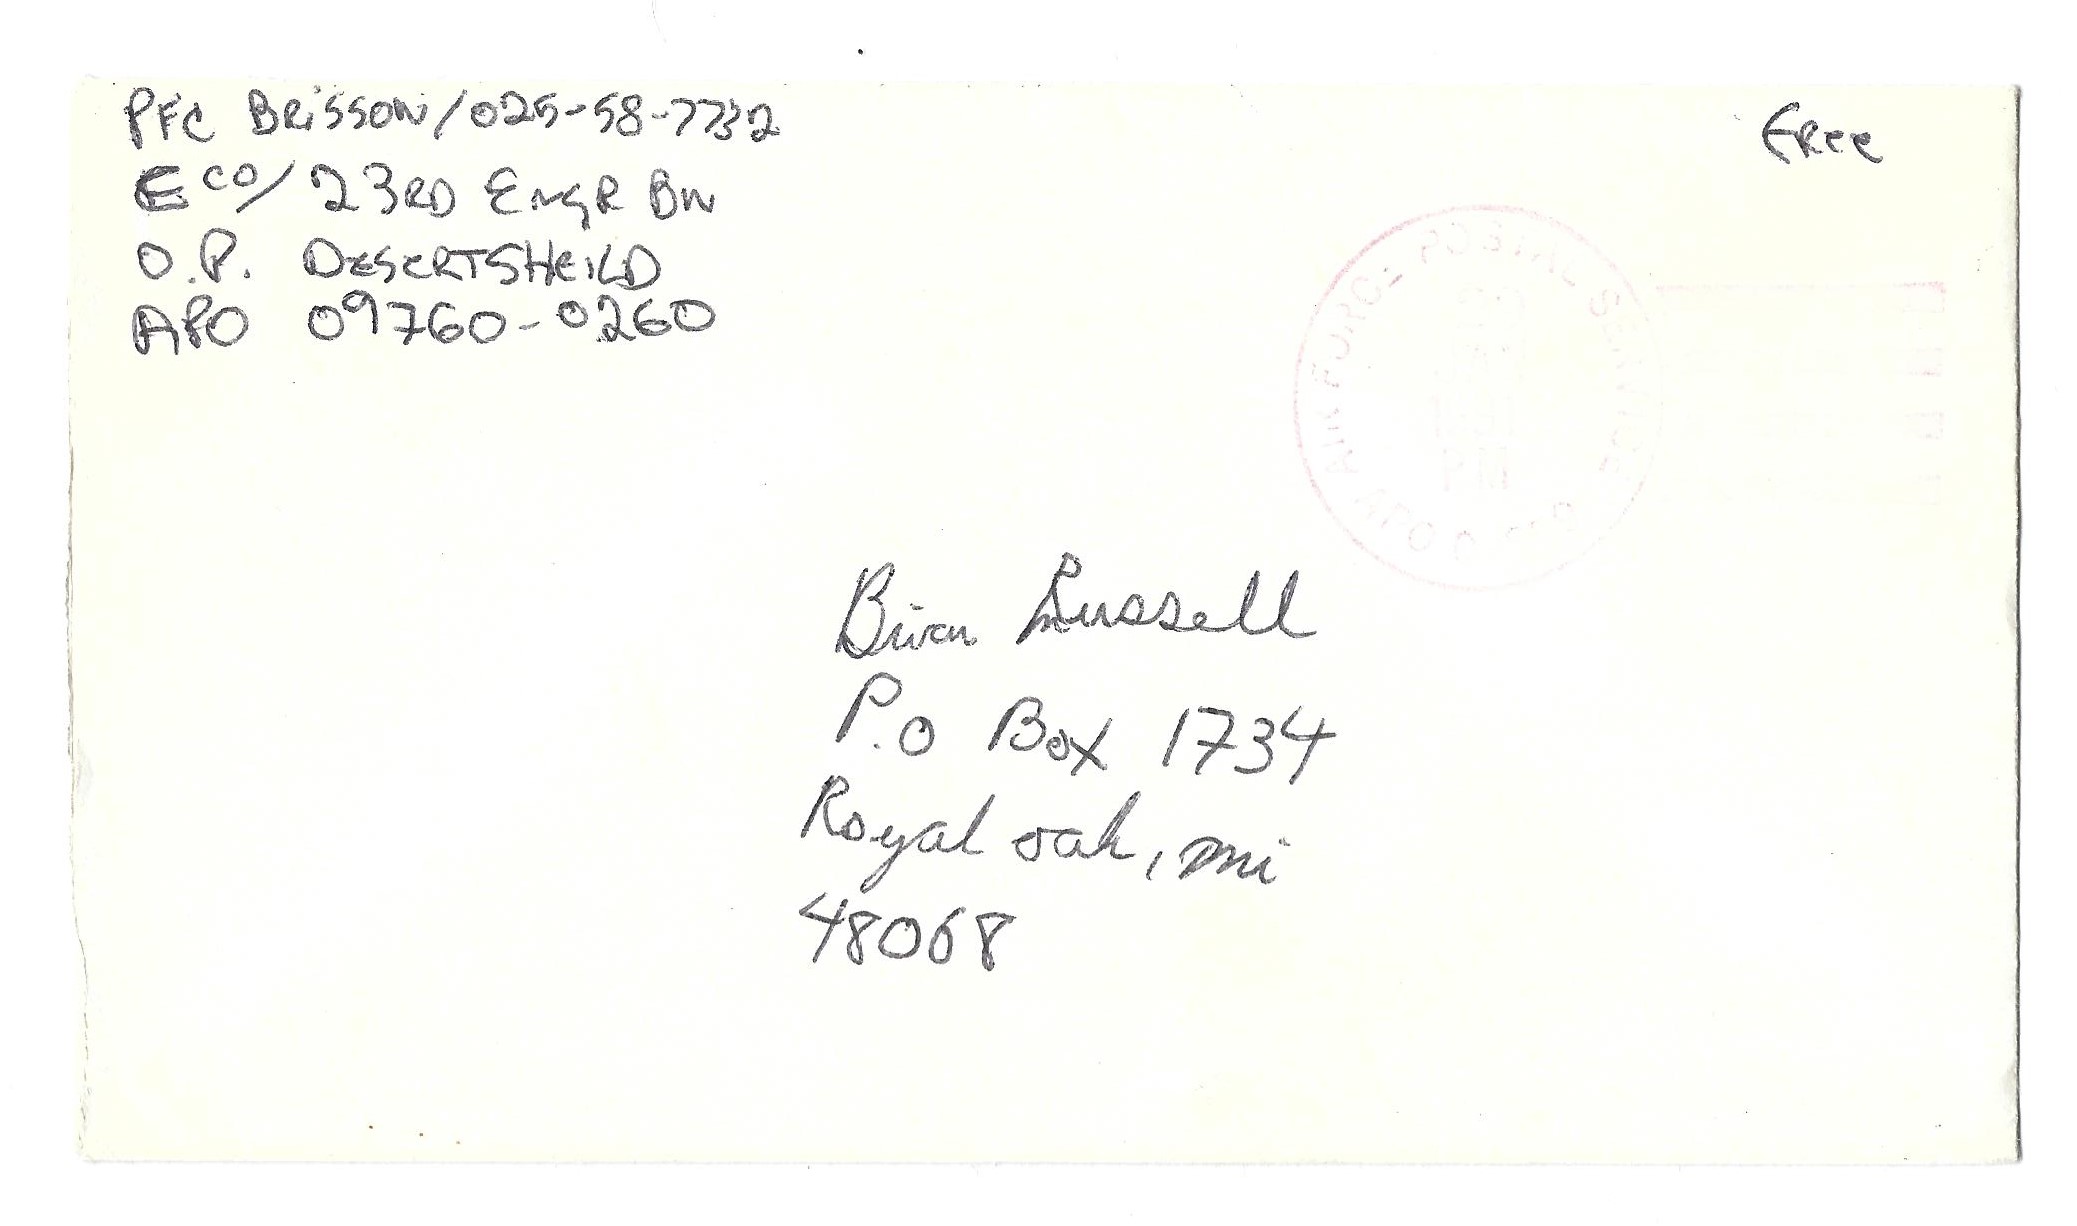 PFC BRISSON/025-58-7732
E CO/ 23RD ENGR BN
O.P. DESERTSHEILD
APO 09760-0260
Free
AIR FORCE POSTAL SERVICE
1991
PM
APO
Brian Russell
P.O Box 1734
Royal oak, mi
48068